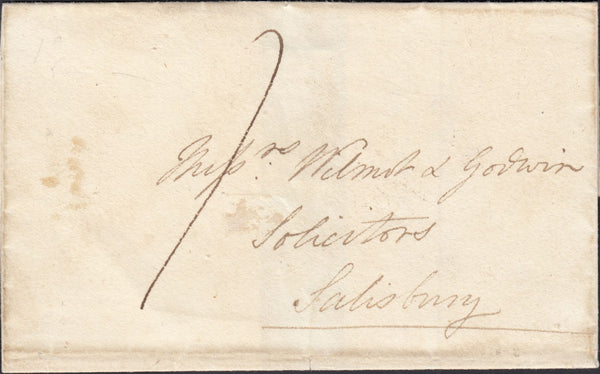 Messrs Wilmot & Godwin
Solicitors
Salisbury